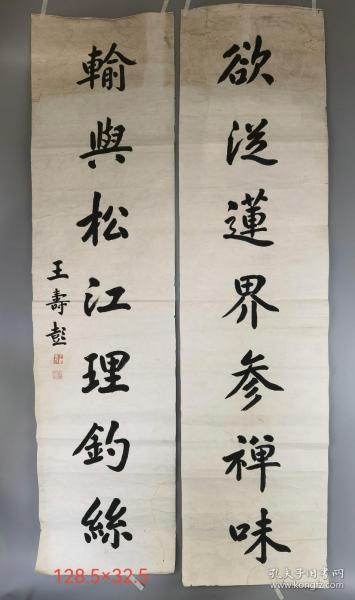 欲從蓮界參禅味
輸與松江理釣絲
王壽彭
128.5×32.5
孔夫子旧书网
www.kongfz.com